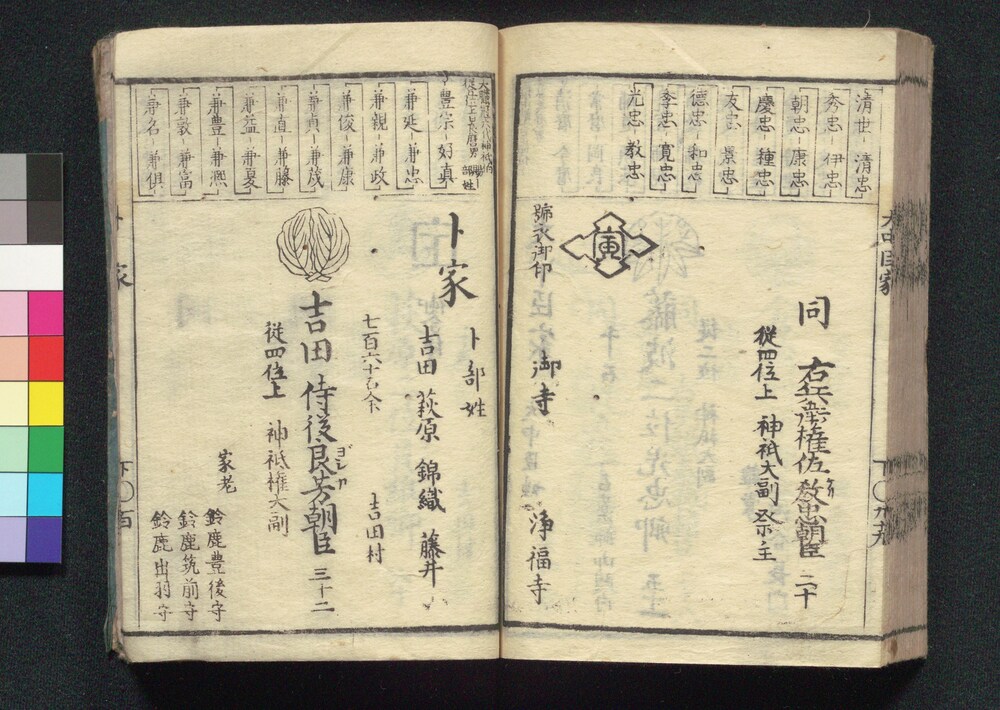 清世 清忠
秀忠 伊忠
朝忠 康忠
慶忠 種忠
友忠 景忠
德忠 和忠
季忠 寛忠
光忠 教忠
同 右兵衛権佐教忠朝臣 二十
從四位上 神祇大副 祭主
寅
御寺 浄福寺
大中臣家
豊宗 好真
兼延 兼忠
兼親 兼政
兼俊 兼康
兼貞 兼茂
兼直 兼藤
兼益 兼夏
兼豊 兼凞
兼敦 兼富
兼名 兼倶
卜家 卜部姓
吉田 萩原 錦織 藤井
七百六十石余 吉田村
吉田 侍従良芳朝臣 三十二
ヨシカ
從四位上 神祇権大副
家老 鈴鹿豊後守
鈴鹿筑前守
鈴鹿出羽守
卜家
下〇百